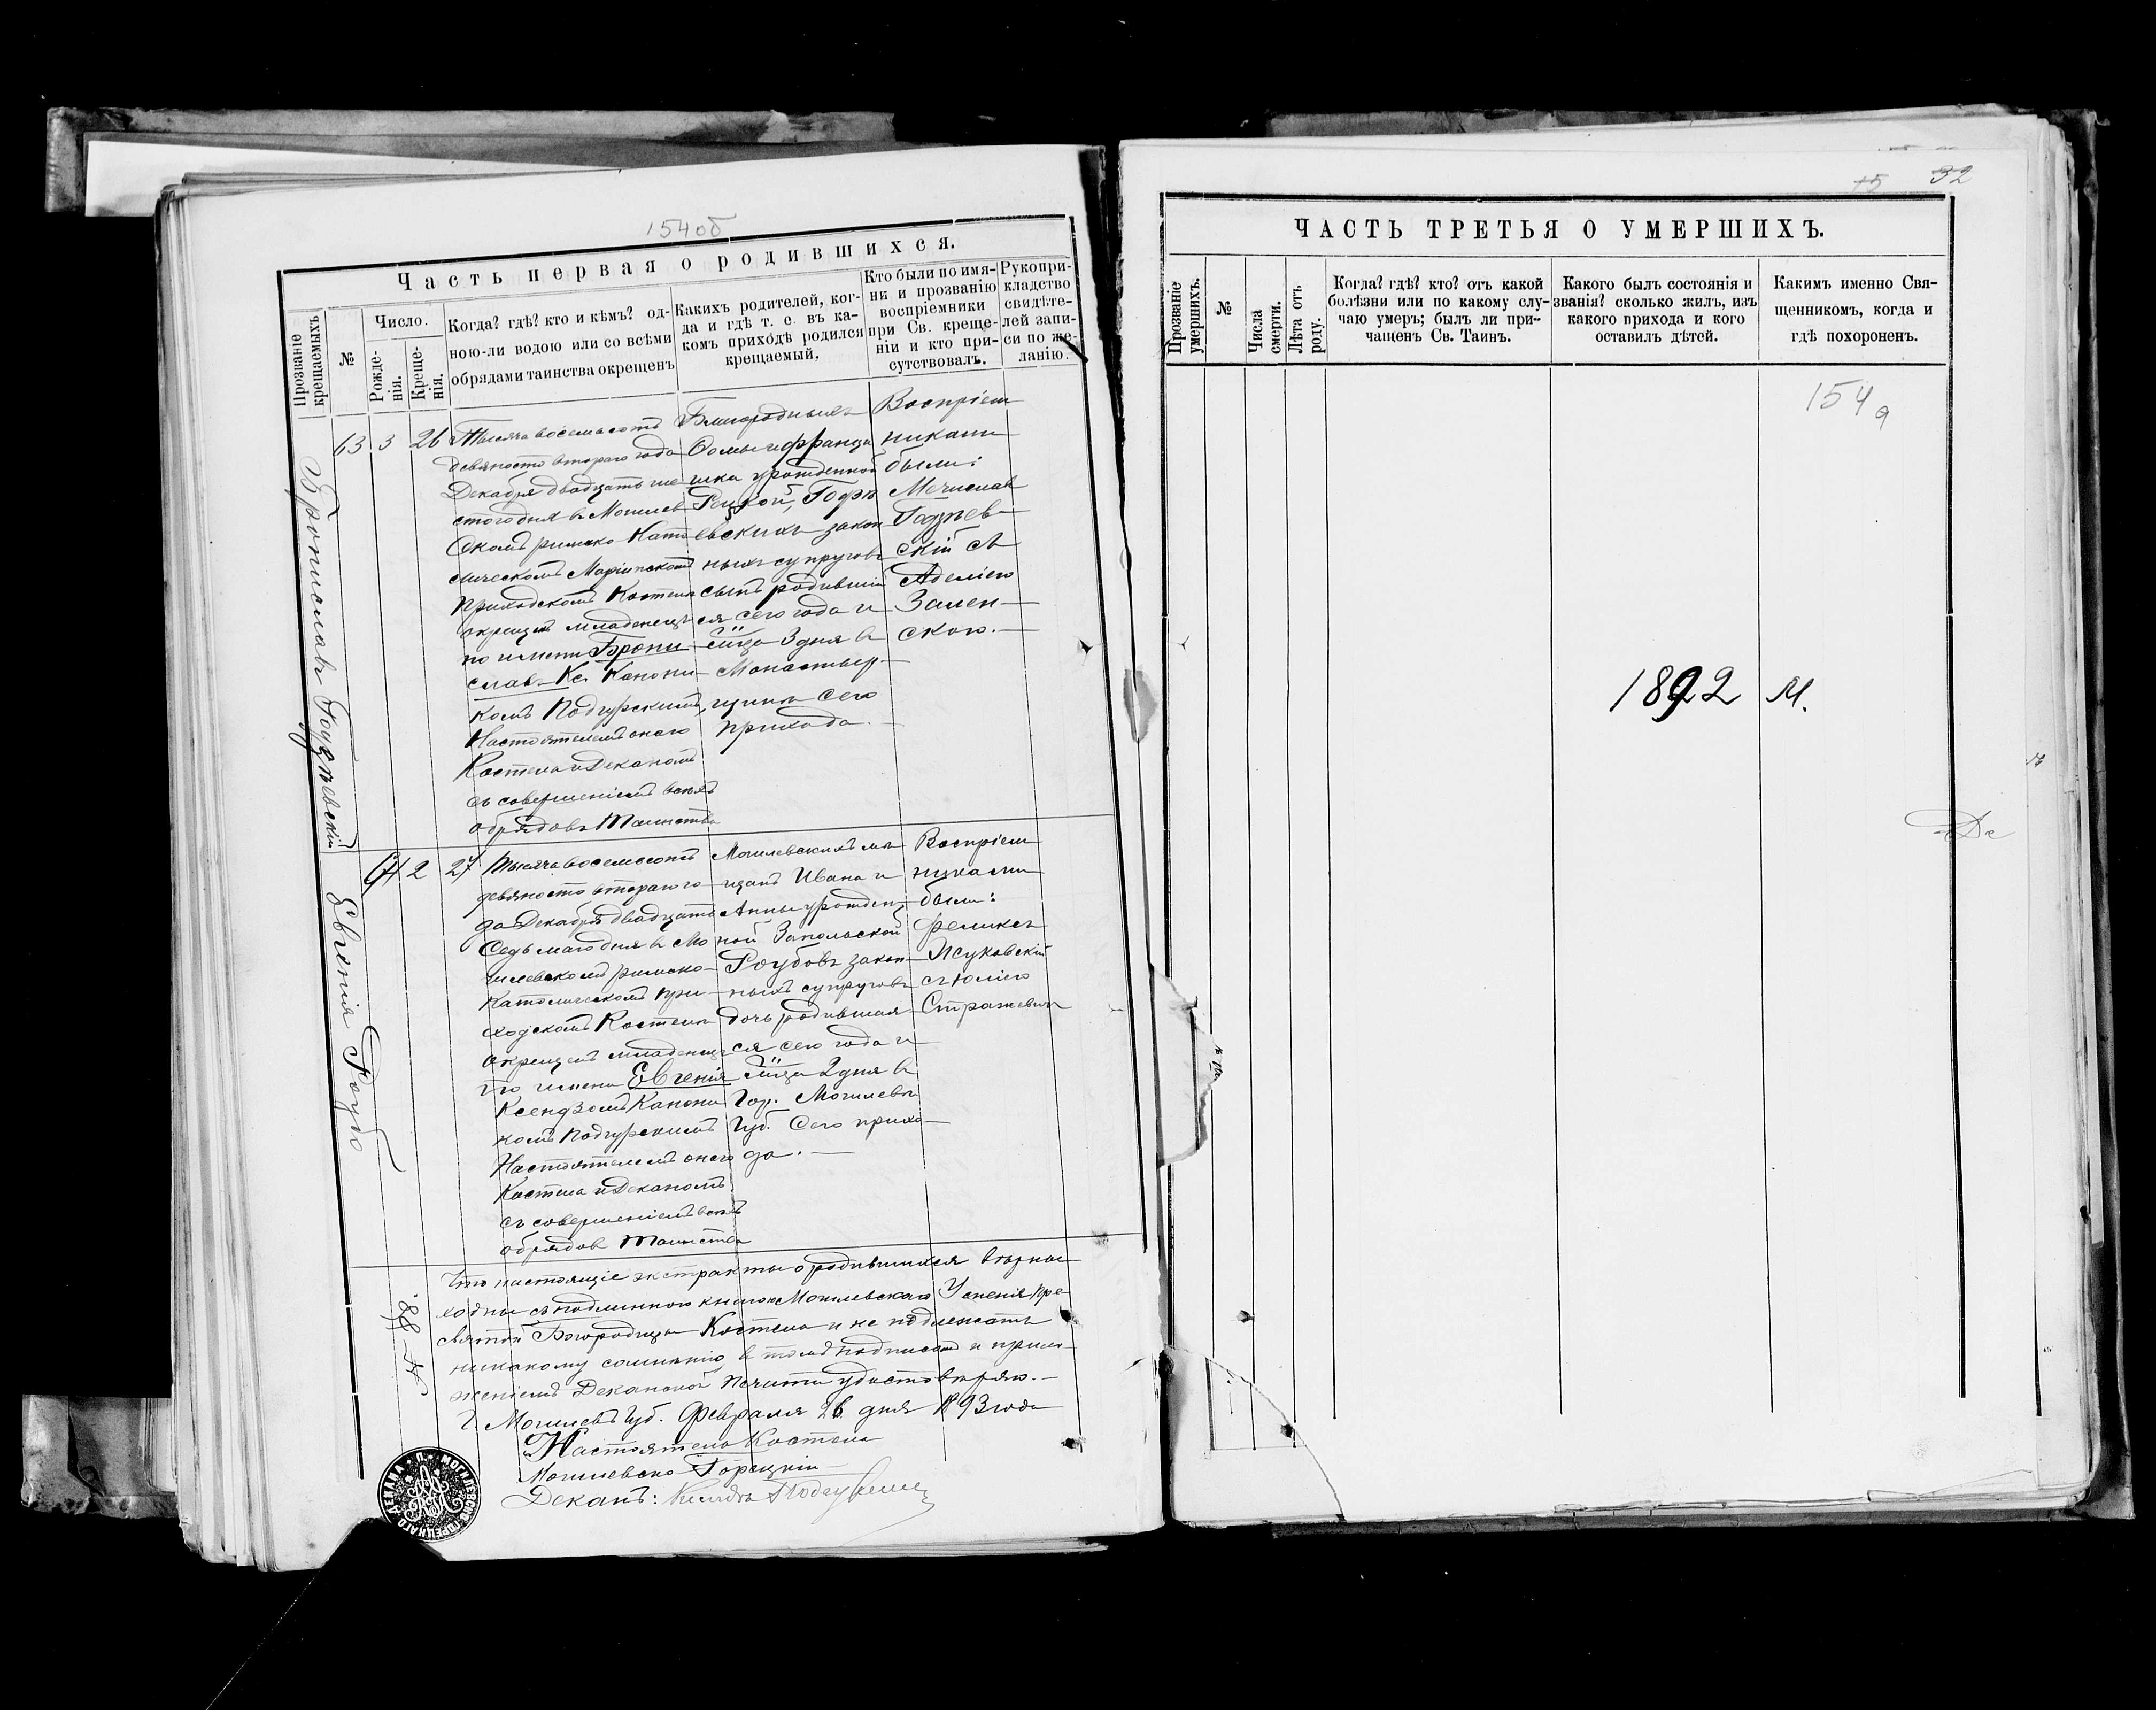 154об
Часть первая о родившихся.
Прозваніе крещаемыхъ
№
Число.
Рожде-
нія.
Креще-
нія.
Когда? гдѣ? кто и кѣмъ? од-
ною-ли водою или со всѣми
обрядами таинства окрещенъ
Какихъ родителей, ког-
да и гдѣ т. е. въ ка-
комъ приходѣ родился
крещаемый.
Кто были по имя-
ни и прозванію
воспріемники
при Св. креще-
ніи и кто при-
сутствовалъ.
Рукопри-
кладство
свидѣте-
лей запи-
си по же-
ланію.
Брониславъ
63
3
26
Тысяча восемьсотъ
девяносто втораго года
Декабря двадцать ше
стого дня въ Могилев
скомъ римско Като
лическомъ Маріинскомъ
приходскомъ Костелѣ
окрещенъ младенецъ
по имени Брони-
славъ Кс. Канони-
комъ Подгурскимъ,
Настоятелемъ онаго
Костела и Деканомъ
съ совершеніемъ всѣхъ
обрядовъ Таинства
Благородныхъ
Ѳомы и Франци
шки урожденной
евскихъ закон
ныхъ супруговъ
сынъ родившій
ся сего года и
м̃ца 3 дня въ
Монастыр-
щинѣ сего
прихода.
Воспріем
никами
были:
Мечиславъ
скій съ
Аделіею
Зален-
скою.
Евгенія Роубо
64
2
27
Тысяча восемьсотъ
девяносто втораго го
да Декабря двадцать
Седьмаго дня въ Мо
гилевскомъ римско-
Католическомъ при-
ходскомъ Костелѣ
окрещенъ младенецъ
по имени Евгенія
Ксендзомъ Канони
комъ Подгурскимъ
Настоятелемъ онаго
Костела и Деканомъ
съ совершеніемъ всѣхъ
обрядовъ Таинства
Могилевскихъ мѣ
щанъ Ивана и
Анны урожден-
ной Запольской
Роубовъ закон-
ныхъ супруговъ
дочь родившая
ся сего года и
м̃ца 2 дня въ
Гор. Могилевѣ
Губ. Сего прихо-
да.
Воспріем
никами
были:
Феликсъ
Жуковскій
съ Юліею
Стражевичъ
Что настоящіе экстракты о родившихся вѣрны
ходны съ подлинною книгою Могилевскаго Успенія Пре-
святой Богородицы Костела и не подлежатъ
никакому сомнѣнію, въ томъ подписомъ и прило-
женіемъ Деканской печати удостовѣряю.
Г. Могилевъ Губ. Февраля 26 дня 1893 года
№ 88.
Настоятель Костела
Могилевско Горецкій
Деканъ:
ДЕКАНА МОГИЛЕВСКО ГОРЕЦКАГО
15 32
ЧАСТЬ ТРЕТЬЯ О УМЕРШИХЪ.
Прозваніе
умершихъ.
№
Числа
смерти.
Лѣта отъ
роду.
Когда? гдѣ? кто? отъ какой
болѣзни или по какому слу-
чаю умеръ; былъ ли при-
чащенъ Св. Таинъ.
Какого былъ состоянія и
званія? сколько жилъ, изъ
какого прихода и кого
оставилъ дѣтей.
Какимъ именно Свя-
щенникомъ, когда и
гдѣ похороненъ.
154а
1892 М.